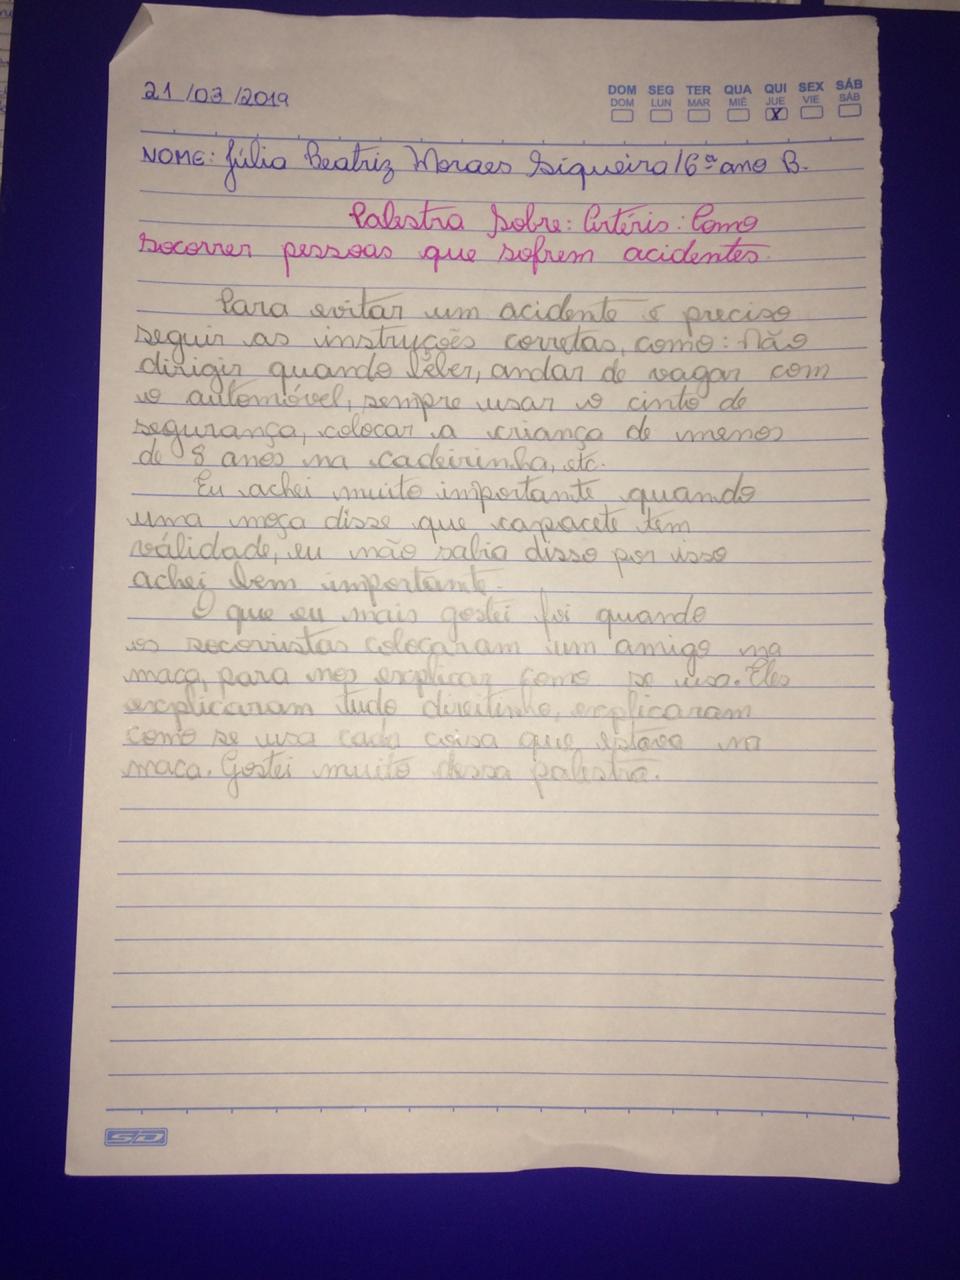 21/03/2019
DOM SEG TER QUA QUI SEX SÁB
DOM LUN MAR MIÉ JUE VIE SÁB
X
NOME: Júlia Beatriz Moraes Siqueira/6º ano B.
Palestra Sobre: Artéris: Como
socorrer pessoas que sofrem acidentes.
Para evitar um acidente é preciso
seguir as instruções corretas, como: Não
dirigir quando bêber, andar de vagar com
o automóvel, sempre usar o cinto de
segurança, colocar a criança de menos
de 8 anos na cadeirinha, etc.
Eu achei muito importante quando
uma moça disse que capacete tem
válidade, eu não sabia disso por isso
achei bem importante.
O que eu mais gostei foi quando
os socorristas colocaram um amigo na
maca, para nos explicar como se usa. Eles
explicaram tudo direitinho, explicaram
como se usa cada coisa que estava na
maca. Gostei muito dessa palestra.
SD